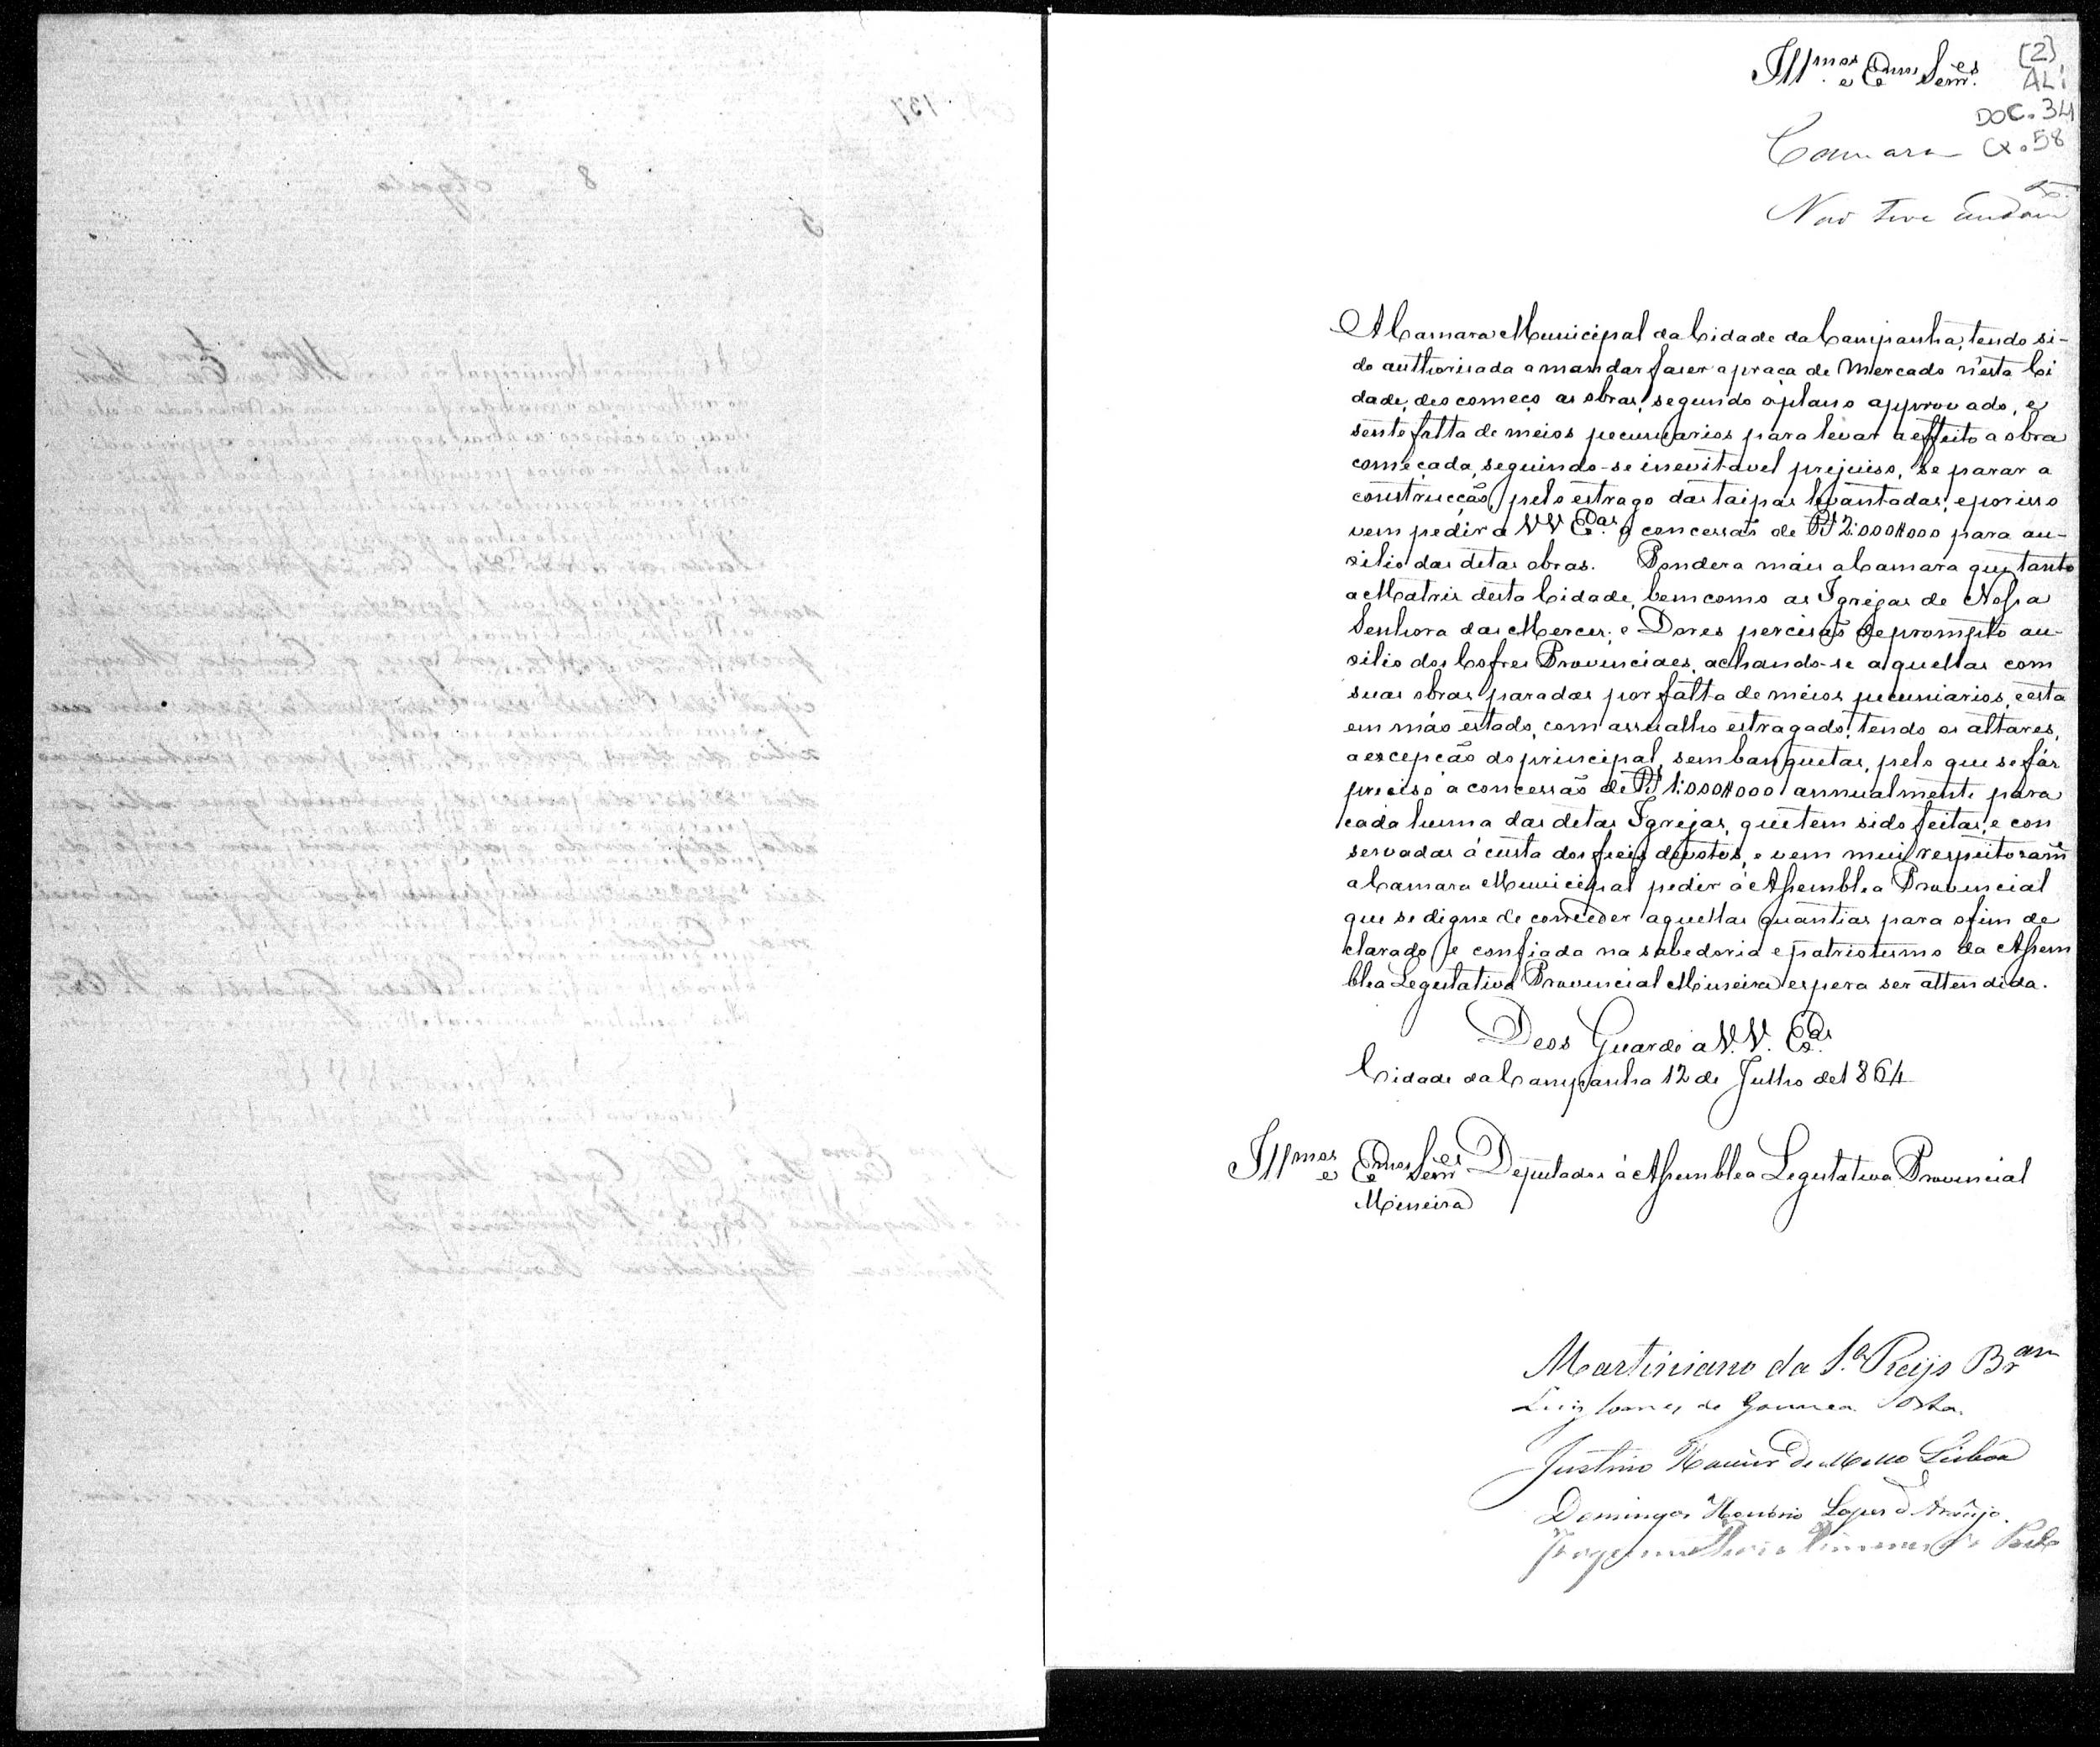 137
8 Agosto
5
Illmos e Exmos Senres
(2)
AL1
DOC. 34
Cx. 58
Camara
Não teve andam
A Camara Municipal da Cidade da Campanha, tendo si-
do authorisada a mandar faser a praça de Mercado n'esta Ci
dade, deo começo as obras, segundo o plano approvado, e
sente falta de meios pecuniarios para levar a effeito a obra
começada, seguindo-se inevitavel prejuiso, se parar a
construcção, pelo estrago das taipas levantadas, e por isso
vem pedir a VV Exas a concessão de Rs 2:000#000 para au-
xilio das ditas obras. Pondera mais a Camara que tanto
a Matriz desta Cidade, bem como as Igrejas de Nossa
Senhora das Merces, e Dores percisão de prompto au-
xilio dos Cofres Provinciaes, achando-se aquellas com
suas obras paradas por falta de meios pecuniarios, e esta
em máo estado, com assualho estragado, tendo os altares,
a excepção do principal, sem banquetas, pelo que se fás
preciso a concessão de Rs 1:000#000 annualmente para
cada huma das ditas Igrejas, que tem sido feitas, e con
servadas á custa dos fieis devotos, e vem mui respeitosame
a Camara Municipal pedir á Assemblea Provincial
que se digne de conceder aquellas quantias para o fim de
clarado, e confiada na sabedoria e patriotismo da Assem
blea Legislativa Provincial Mineira espera ser attendida.
Deos Guarde a V.V. Exas
Cidade da Campanha 12 de Julho de 1864
Illmos e Exmos Senres Deputados á Assemblea Legislativa Provincial
Mineira
Martiniano da Sa Reijs Bram
Luiz Gomes de Gouvea
Justino Xavier de Mello Lisboa
Domingos Honorio Lopes d Araujo.